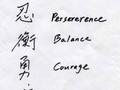 忍 Perserverence
衡 Balance
勇 Courage